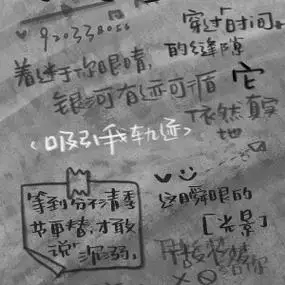 920338056
着迷于你眼睛,
银河有迹可循
<吸引我轨迹>
穿过「时间」
的缝隙
它
依然真
地
等到分不清季
节更替,才敢
说"沉溺.
这瞬眼的
[光景]
给你